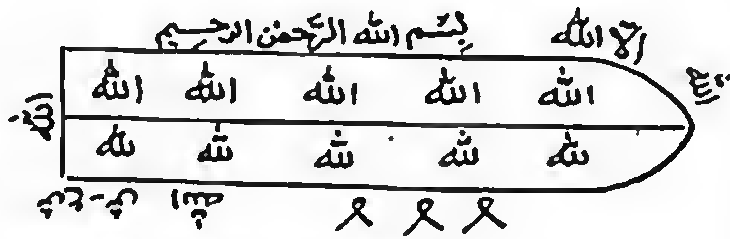 بِسْمِ اللهِ الرَّحْمٰنِ الرَّحِيمِ
إلا الله
الله الله الله الله الله
لله لله لله لله لله
الله
الله